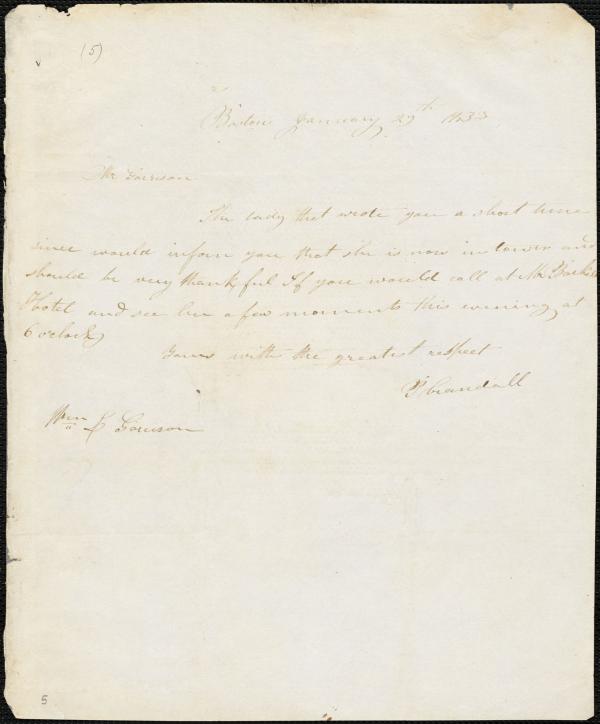 (5)
Boston January 29th 1833
Mr Garrison
The lady that wrote you a short time
since would inform you that she is now in town and
should be very thankful If you would call at Mr Barkers
Hotel and see her a few moments this evening at
6 oclock
Yours with the greatest respect
P Crandall
Wm L Garrison
5